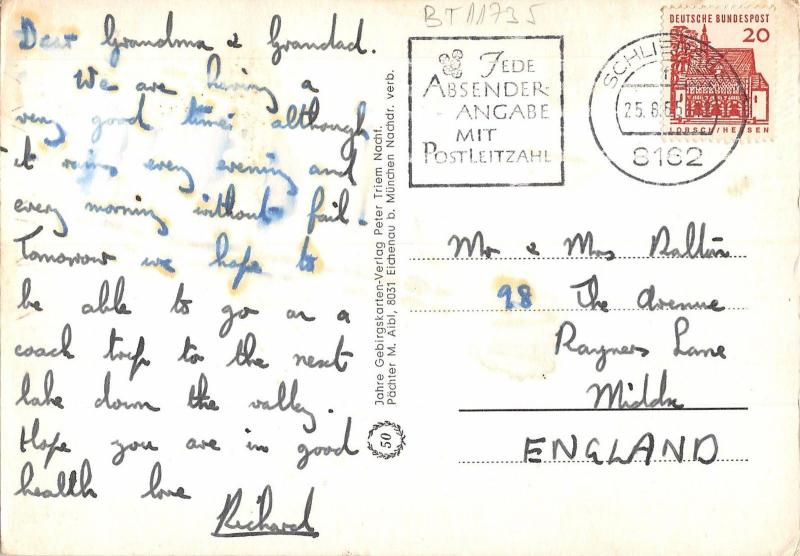 BT11735
Dear Grandma & Grandad.
We are having a
very good time although
it rains every evening and
every morning without fail.
Tomorrow we hope to
be able to go on a
coach trip to the next
lake down the valley.
Hope you are in good
health love
Richard
50 Jahre Gebirgskarten-Verlag Peter Triem Nachf.
Pächter M. Aibl, 8031 Eichenau b. München Nachdr. verb.
JEDE
ABSENDER-
-ANGABE
MIT
POSTLEITZAHL
SCHLIERSEE
25.8.65
8162
DEUTSCHE BUNDESPOST
20
LORSCH/HESSEN
Mr & Mrs Dalton
98 The Avenue
Rayners Lane
Middx
ENGLAND